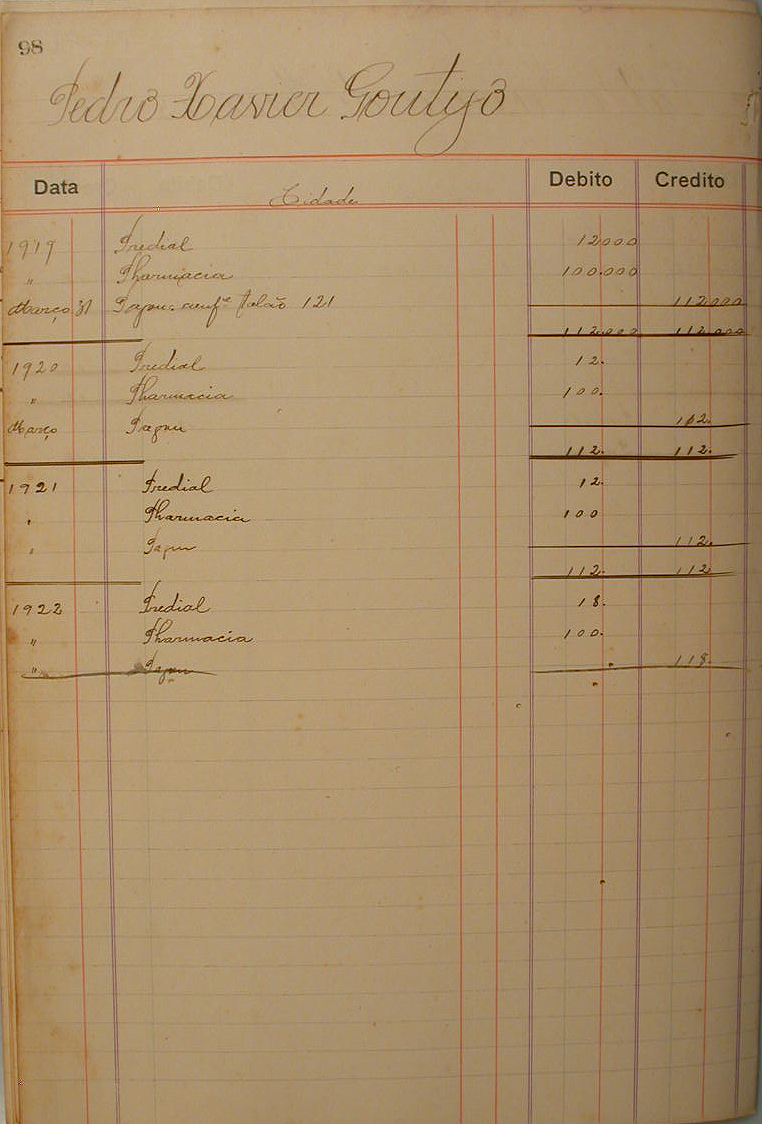 98
Pedro Xavier Gontijo
Data Cidade Debito Credito
1919 Predial 12000
" Pharmacia 100.000
Março 31 Pagou. conf.e talão 121 112000
112.000 112.000
1920 Predial 12.
" Pharmacia 100.
Março Pagou 112.
112. 112.
1921 Predial 12.
" Pharmacia 100
" Pagou 112.
112. 112
1922 Predial 18.
" Pharmacia 100.
" Pagou 118.